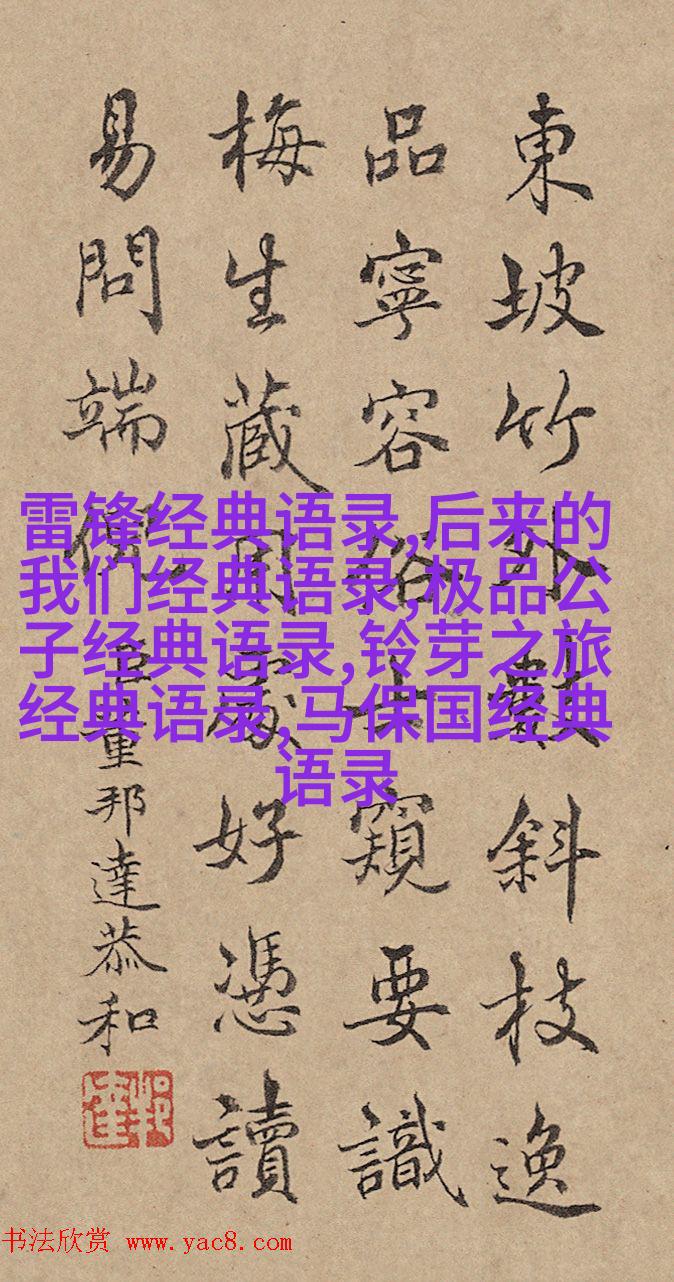 東坡竹外數斜枝逸
品寧容俗士窺要識
梅生藏用處好憑讀
易問端倪
臣董邦達恭和
雷锋经典语录,后来的
我们经典语录,极品公
子经典语录,铃芽之旅
经典语录,马保国经典
语录
书法欣赏 www.yac8.com